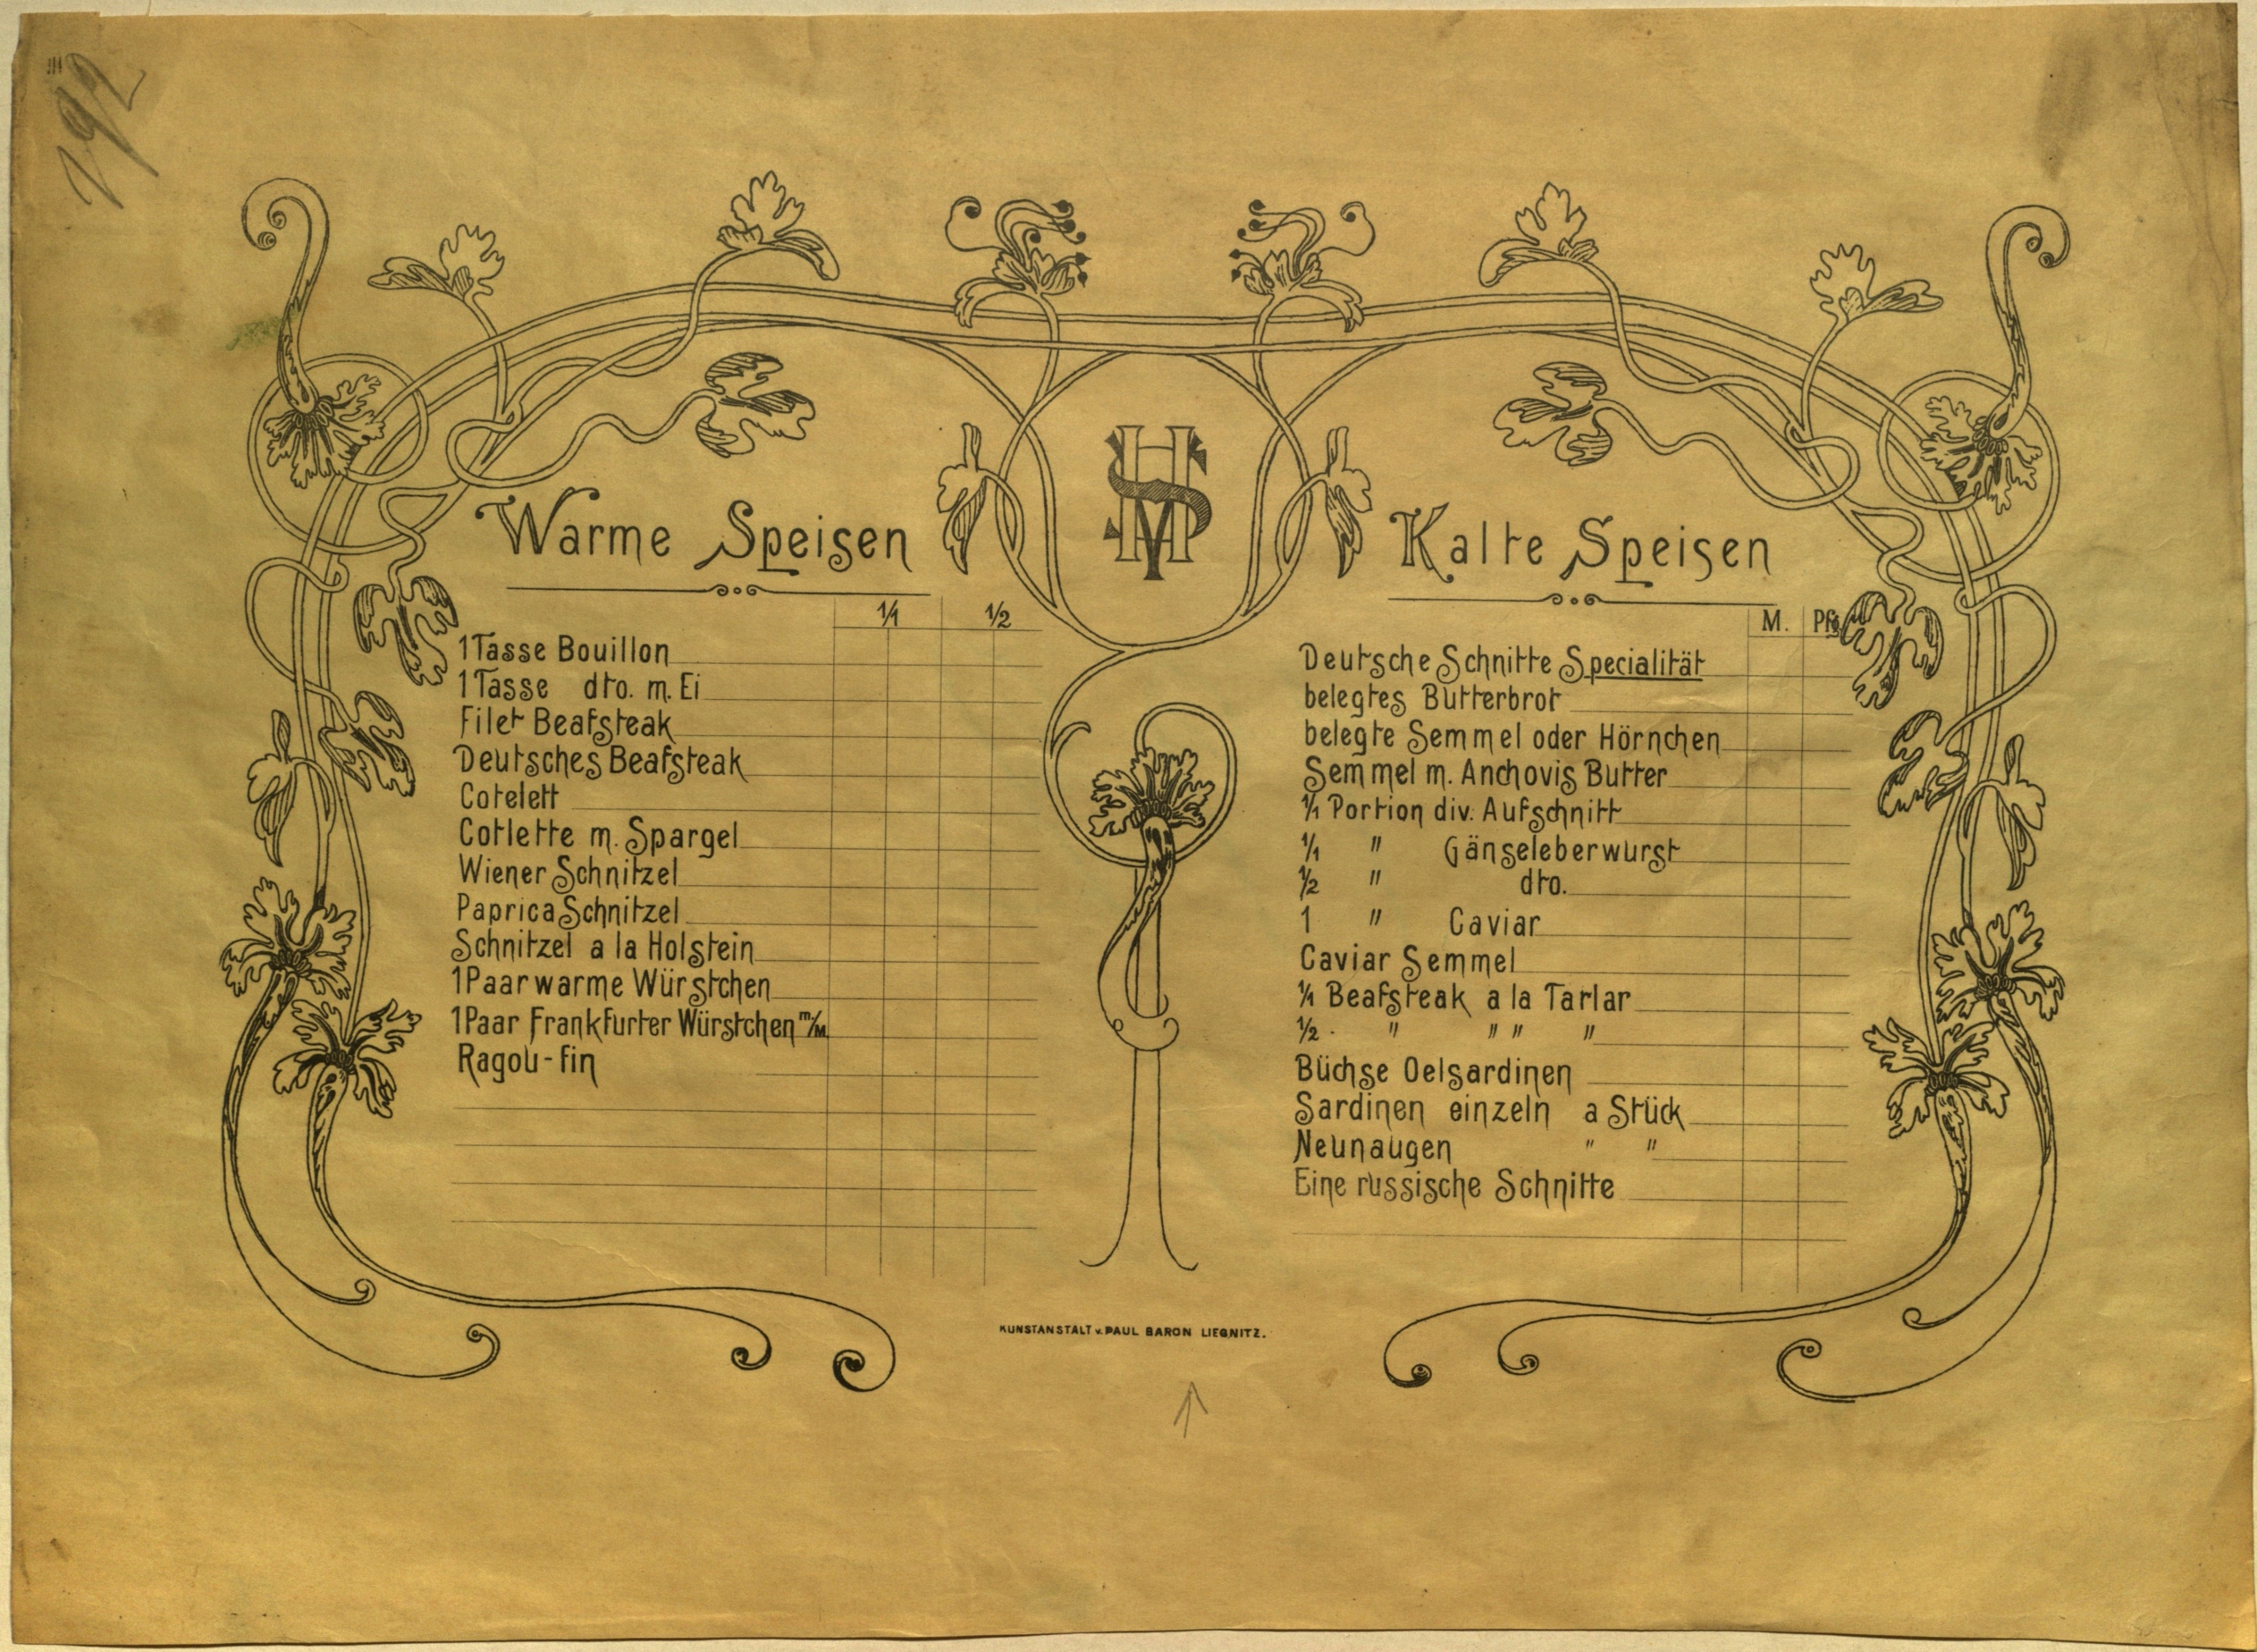 192
HSM
Warme Speisen
1/1 1/2
1 Tasse Bouillon
1 Tasse dto. m. Ei
Filet Beafsteak
Deutsches Beafsteak
Cotelett
Cotlette m. Spargel
Wiener Schnitzel
Paprica Schnitzel
Schnitzel a la Holstein
1 Paar warme Würstchen
1 Paar Frankfurter Würstchen m/M
Ragou-fin
Kalte Speisen
M. Pfg
Deutsche Schnitte Specialität
belegtes Butterbrot
belegte Semmel oder Hörnchen
Semmel m. Anchovis Butter
1/1 Portion div. Aufschnitt
1/1 " Gänseleberwurst
1/2 " dto.
1 " Caviar
Caviar Semmel
1/1 Beafsteak a la Tartar
1/2 . " " " "
Büchse Oelsardinen
Sardinen einzeln a Stück
Neunaugen " "
Eine russische Schnitte
KUNSTANSTALT v. PAUL BARON LIEGNITZ.